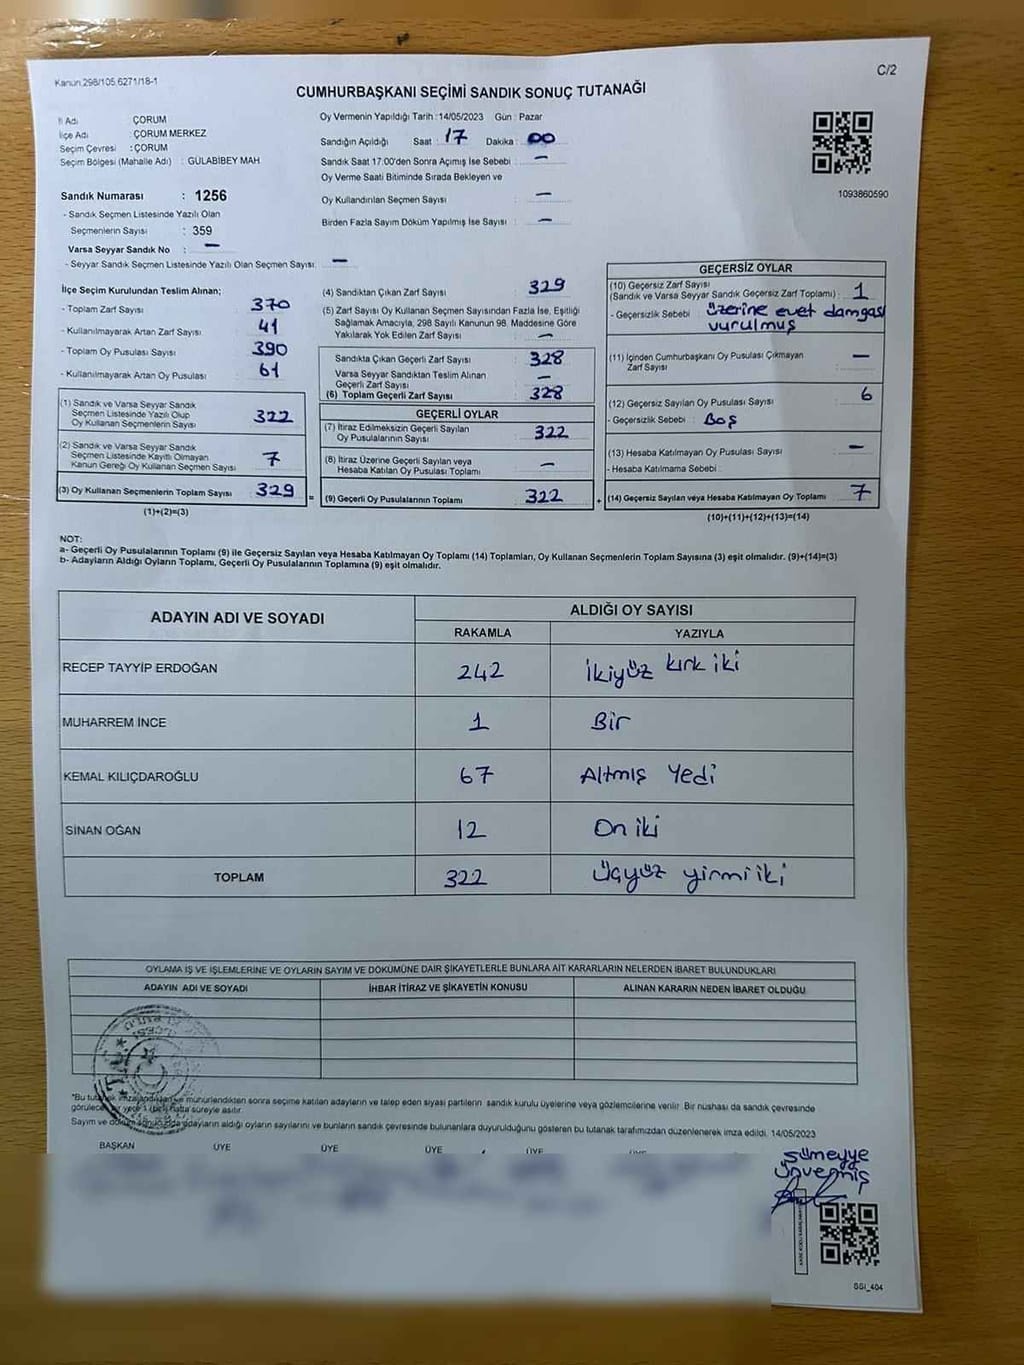 Kanun 298/105.6271/18-1
C/2
CUMHURBAŞKANI SEÇİMİ SANDIK SONUÇ TUTANAĞI
İl Adı ÇORUM
İlçe Adı ÇORUM MERKEZ
Seçim Çevresi : ÇORUM
Seçim Bölgesi (Mahalle Adı) : GÜLABİBEY MAH
Sandık Numarası : 1256
- Sandık Seçmen Listesinde Yazılı Olan
Seçmenlerin Sayısı : 359
Varsa Seyyar Sandık No : —
- Seyyar Sandık Seçmen Listesinde Yazılı Olan Seçmen Sayısı: —
Oy Vermenin Yapıldığı Tarih : 14/05/2023 Gün : Pazar
Sandığın Açıldığı Saat : 17 Dakika : 00
Sandık Saat 17:00'den Sonra Açımış İse Sebebi : —
Oy Verme Saati Bitiminde Sırada Bekleyen ve
Oy Kullandırılan Seçmen Sayısı : —
Birden Fazla Sayım Döküm Yapılmış İse Sayısı : —
1093860590
İlçe Seçim Kurulundan Teslim Alınan;
- Toplam Zarf Sayısı : 370
- Kullanılmayarak Artan Zarf Sayısı : 41
- Toplam Oy Pusulası Sayısı : 390
- Kullanılmayarak Artan Oy Pusulası : 61
(1) Sandık ve Varsa Seyyar Sandık
Seçmen Listesinde Yazılı Olup
Oy Kullanan Seçmenlerin Sayısı 322
(2) Sandık ve Varsa Seyyar Sandık
Seçmen Listesinde Kayıtlı Olmayan
Kanun Gereği Oy Kullanan Seçmen Sayısı 7
(3) Oy Kullanan Seçmenlerin Toplam Sayısı 329 =
(1)+(2)=(3)
(4) Sandıktan Çıkan Zarf Sayısı : 329
(5) Zarf Sayısı Oy Kullanan Seçmen Sayısından Fazla İse, Eşitliği
Sağlamak Amacıyla, 298 Sayılı Kanunun 98. Maddesine Göre
Yakılarak Yok Edilen Zarf Sayısı : —
Sandıkta Çıkan Geçerli Zarf Sayısı : 328
Varsa Seyyar Sandıktan Teslim Alınan
Geçerli Zarf Sayısı : —
(6) Toplam Geçerli Zarf Sayısı : 328
GEÇERLİ OYLAR
(7) İtiraz Edilmeksizin Geçerli Sayılan
Oy Pusulalarının Sayısı : 322
(8) İtiraz Üzerine Geçerli Sayılan veya
Hesaba Katılan Oy Pusulası Toplamı : —
(9) Geçerli Oy Pusulalarının Toplamı : 322 +
GEÇERSİZ OYLAR
(10) Geçersiz Zarf Sayısı
(Sandık ve Varsa Seyyar Sandık Geçersiz Zarf Toplamı) : 1
- Geçersizlik Sebebi : üzerine evet damgası
vurulmuş
(11) İçinden Cumhurbaşkanı Oy Pusulası Çıkmayan
Zarf Sayısı : —
(12) Geçersiz Sayılan Oy Pusulası Sayısı : 6
- Geçersizlik Sebebi : Boş
(13) Hesaba Katılmayan Oy Pusulası Sayısı : —
- Hesaba Katılmama Sebebi :
(14) Geçersiz Sayılan veya Hesaba Katılmayan Oy Toplamı : 7
(10)+(11)+(12)+(13)=(14)
NOT:
a- Geçerli Oy Pusulalarının Toplamı (9) ile Geçersiz Sayılan veya Hesaba Katılmayan Oy Toplamı (14) Toplamları, Oy Kullanan Seçmenlerin Toplam Sayısına (3) eşit olmalıdır. (9)+(14)=(3)
b- Adayların Aldığı Oyların Toplamı, Geçerli Oy Pusulalarının Toplamına (9) eşit olmalıdır.
ADAYIN ADI VE SOYADI ALDIĞI OY SAYISI
RAKAMLA YAZIYLA
RECEP TAYYİP ERDOĞAN 242 İkiyüz kırk iki
MUHARREM İNCE 1 Bir
KEMAL KILIÇDAROĞLU 67 Altmış Yedi
SİNAN OĞAN 12 On iki
TOPLAM 322 Üçyüz yirmi iki
OYLAMA İŞ VE İŞLEMLERİNE VE OYLARIN SAYIM VE DÖKÜMÜNE DAİR ŞİKAYETLERLE BUNLARA AİT KARARLARIN NELERDEN İBARET BULUNDUKLARI
ADAYIN ADI VE SOYADI İHBAR İTİRAZ VE ŞİKAYETİN KONUSU ALINAN KARARIN NEDEN İBARET OLDUĞU
*Bu tutanak imzalandıktan ve mühürlendikten sonra seçime katılan adayların ve talep eden siyasi partilerin sandık kurulu üyelerine veya gözlemcilerine verilir. Bir nüshası da sandık çevresinde
görülecek bir yere 1 (bir) hafta süreyle asılır.
Sayım ve döküm sonucunda adayların aldığı oyların sayılarını ve bunların sandık çevresinde bulunanlara duyurulduğunu gösteren bu tutanak tarafımızdan düzenlenerek imza edildi. 14/05/2023
BAŞKAN ÜYE ÜYE ÜYE ÜYE
sümeyye
ünvermiş
SSI_404